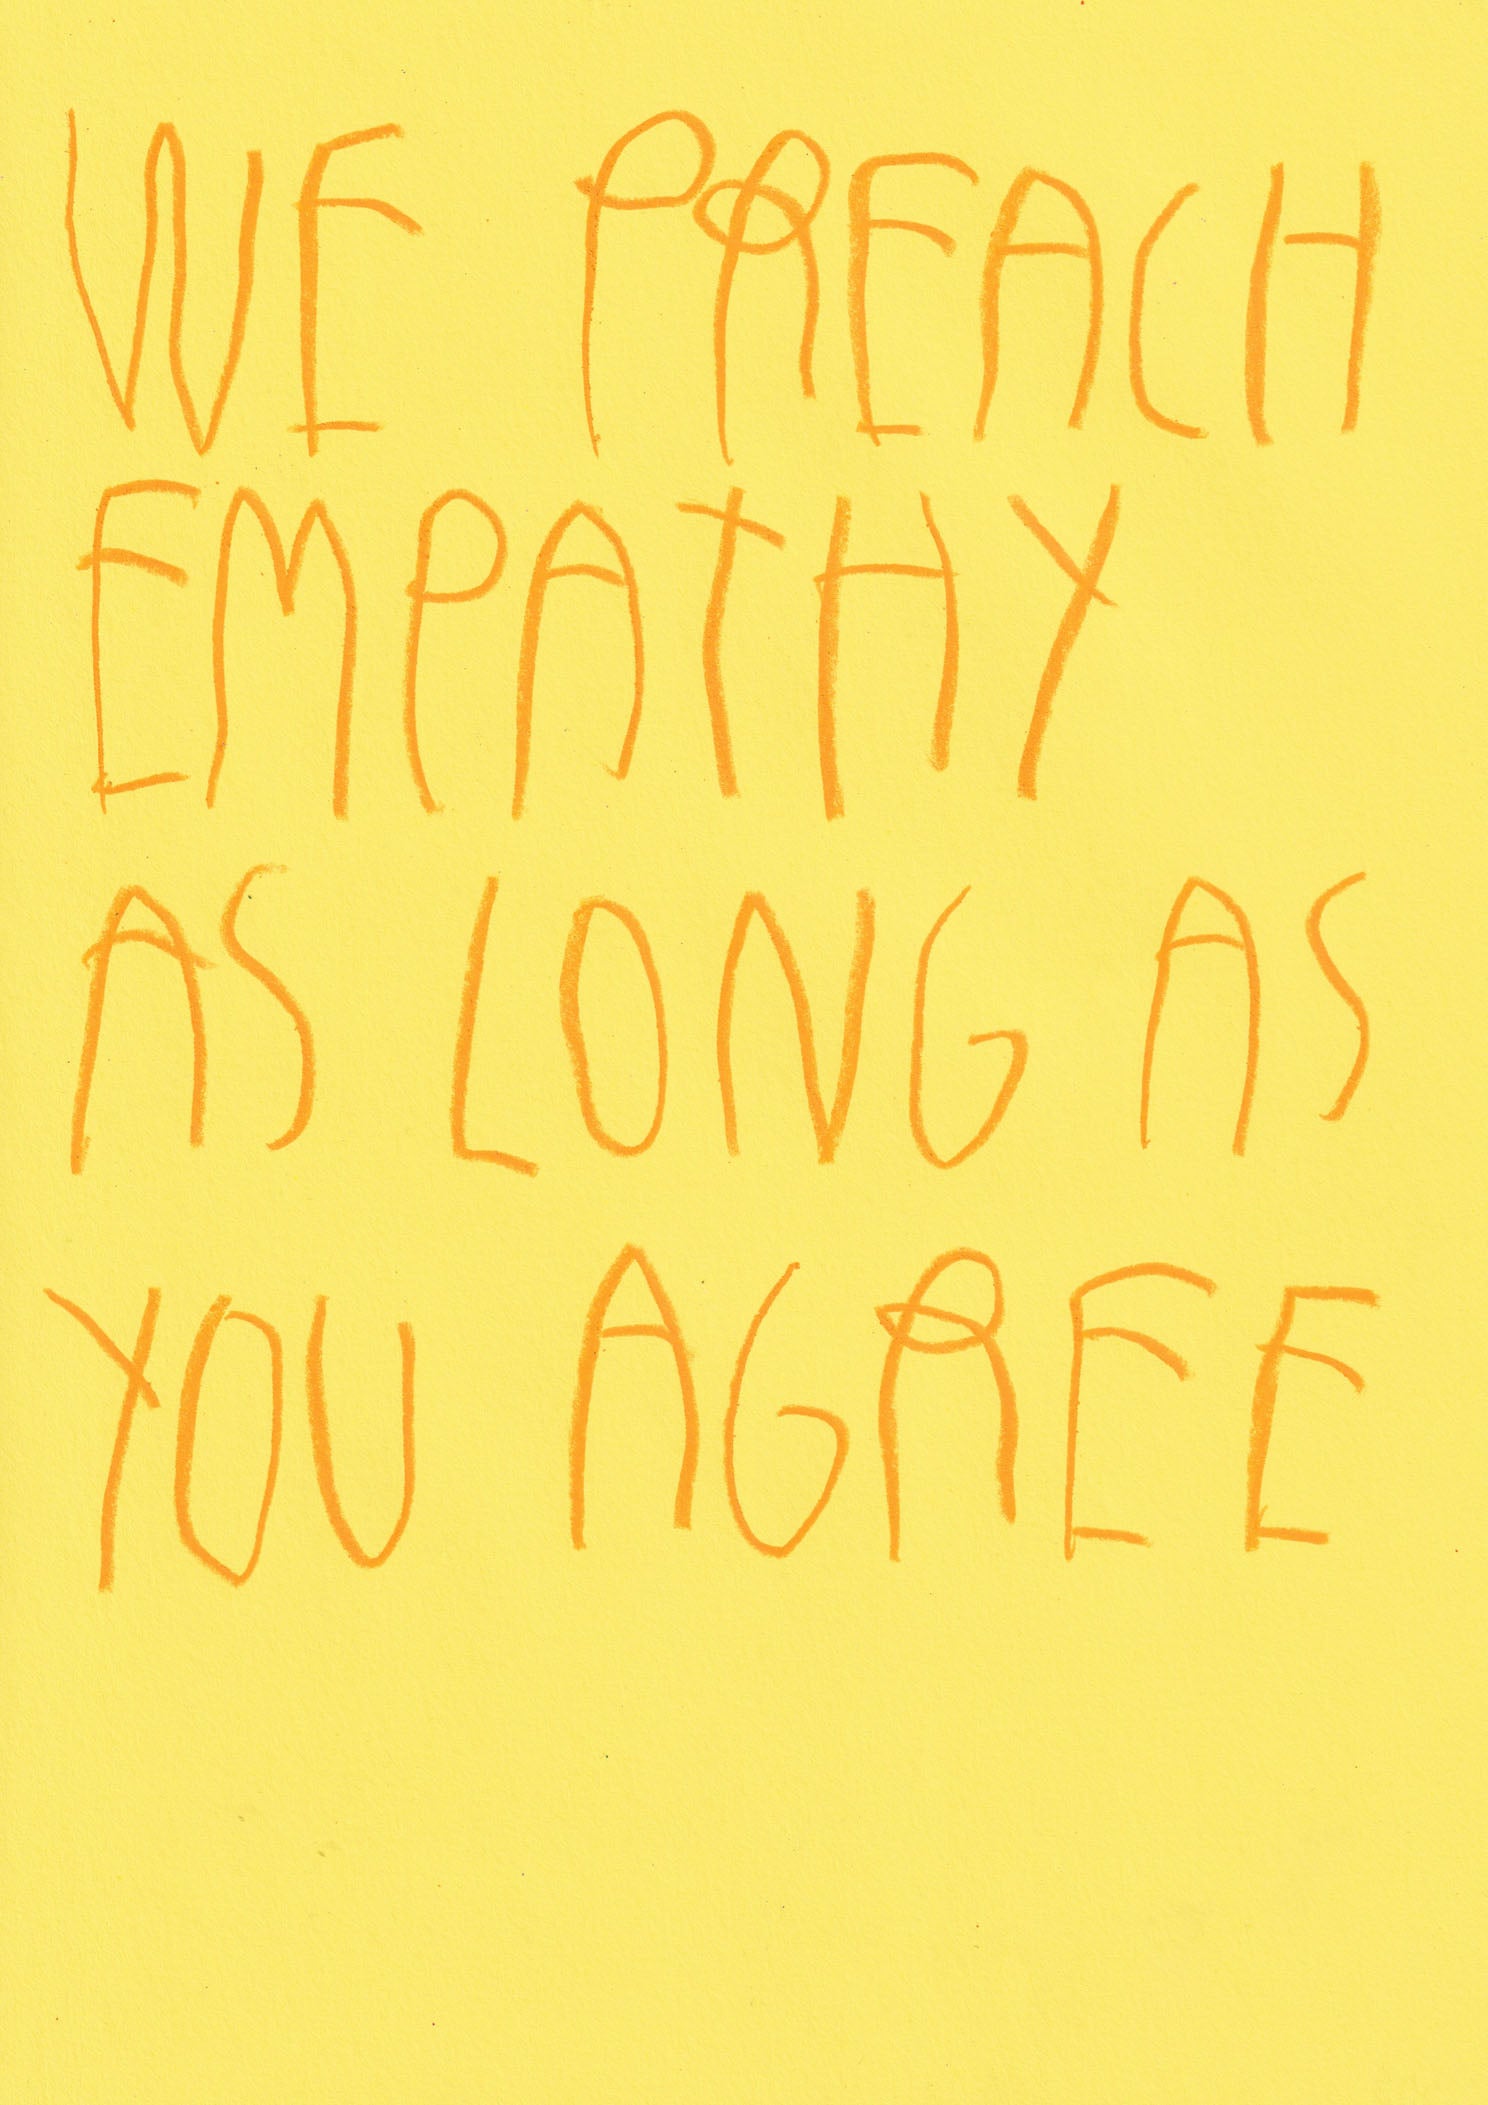 WE PREACH
EMPATHY
AS LONG AS
YOU AGREE